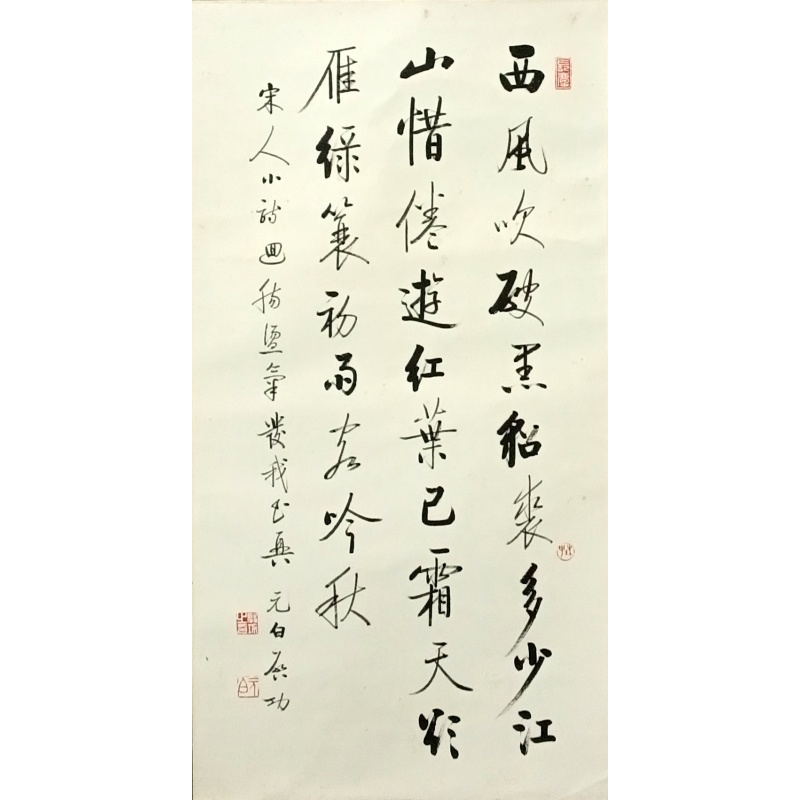 西風吹破黑貂裘多少江
山惜倦遊紅葉已霜天欲
雁綠蓑初雨客吟秋
宋人小詩迴腸盪氣發我書興 元白啟功